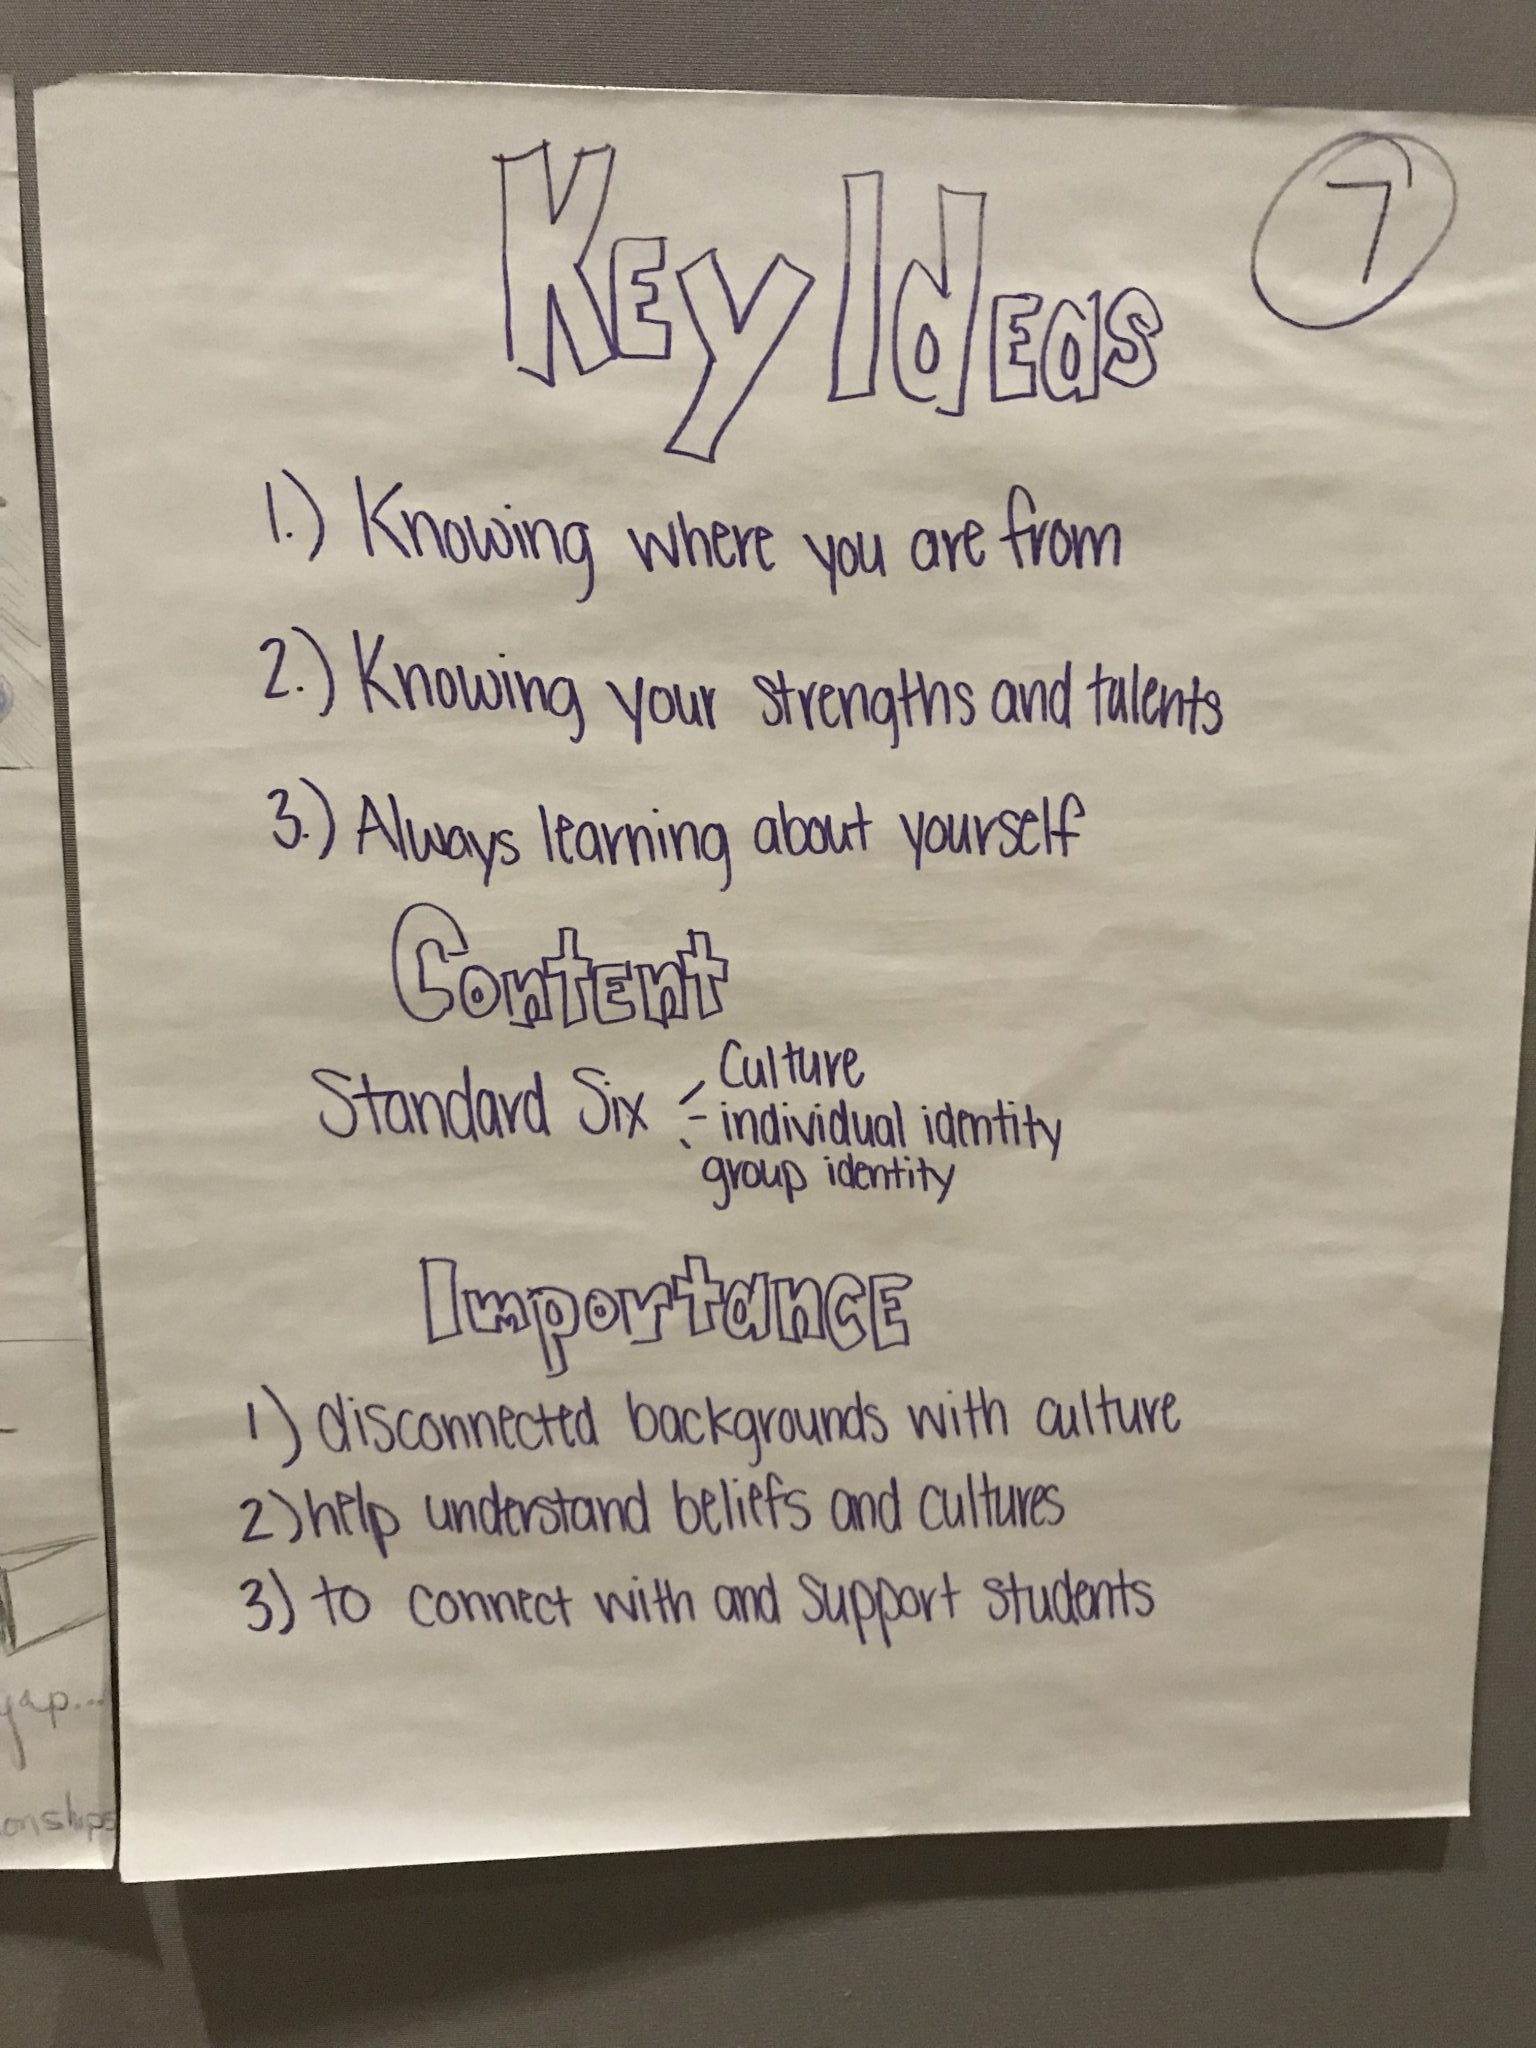 Key Ideas
7
1.) Knowing where you are from
2.) Knowing your strengths and talents
3.) Always learning about yourself
Content
Culture
Standard Six - individual identity
group identity
Importance
1) disconnected backgrounds with culture
2) help understand beliefs and cultures
3) to connect with and support students